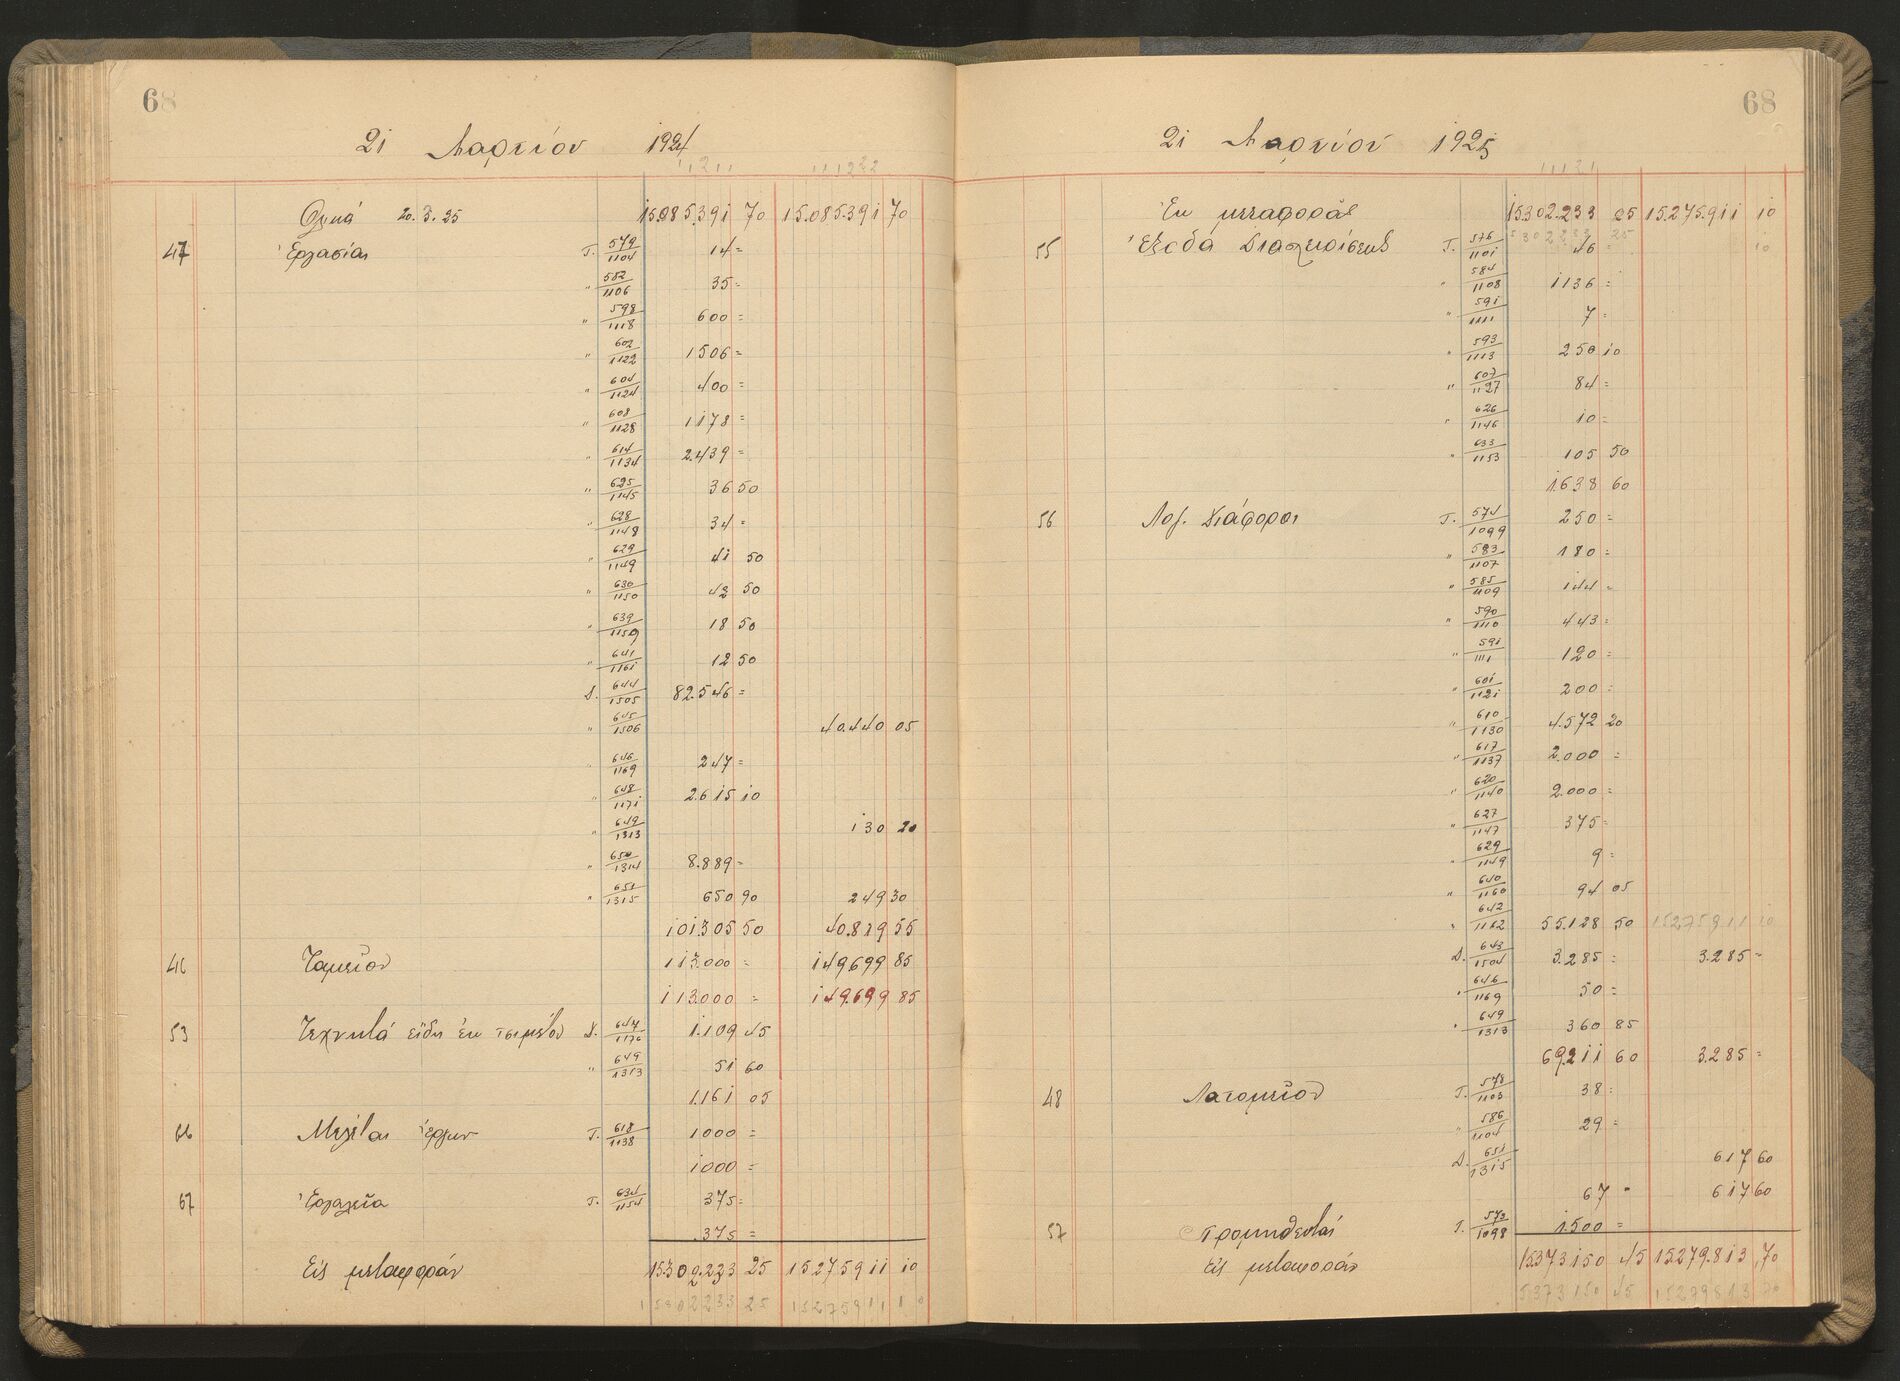 68
21 Μαρτίου 1924
Ολικά 20.3.25 15.085.391 70 15.085.391 70
47 Εργασίαι T. 579/1104 14 =
" 582/1106 35 =
" 598/1118 600 =
" 602/1122 1506 =
" 604/1124 400 =
" 608/1128 1178 =
" 614/1134 2.439 =
" 625/1145 36 50
" 628/1148 34 =
" 629/1149 41 50
" 630/1150 42 50
" 639/1159 18 50
" 641/1161 12 50
Δ. 644/1505 82.546 =
" 645/1506 40.440 05
" 646/1169 247 =
" 648/1171 2.615 10
" 649/1313 130 20
" 650/1314 8.889 =
" 651/1315 650 90 249 30
101.305 50 40.819 55
46 Ταμείον 113.000 = 149.699 85
113.000 = 149.699 85
53 Τεχνικά είδη εκ τσιμέντου Δ. 647/1170 1.109 45
" 649/1313 51 60
1.161 05
66 Μελέται έργων T. 618/1138 1000 =
1000 =
67 Εργαλεία T. 634/1154 375 =
375 =
Εις μεταφοράν 15.302.233 25 15275911 10
15302233 25 15275911 10
68
21 Μαρτίου 1925
Εκ μεταφοράς 15.302.233 25 15.275.911 10
5302233 25 10
55 Έξοδα Διαχειρίσεως T. 576/1101 46 =
" 584/1108 1136 =
" 591/1111 7 =
" 593/1113 250 10
" 607/1127 84 =
" 626/1146 10 =
" 633/1153 105 50
1.638 60
56 Λογ. Διάφοροι T. 574/1099 250 =
" 583/1107 180 =
" 585/1109 144 =
" 590/1110 443 =
" 591/1111 120 =
" 601/1121 200 =
" 610/1130 4.572 20
" 617/1137 2.000 =
" 620/1140 2.000 =
" 627/1147 375 =
" 629/1149 9 =
" 640/1160 94 05
" 642/1162 55.128 50 15275911 10
Δ. 643/1504 3.285 = 3.285 =
" 646/1169 50 =
" 649/1313 360 85
69.211 60 3.285 =
48 Λατομείον T. 578/1103 38 =
" 586/1104 29 =
Δ. 651/1315 617 60
67 " 617 60
57 Προμηθευταί T. 573/1098 1.500 =
Εις μεταφοράν 15.373.150 45 15.279.813,70
5373150 45 15279813 70